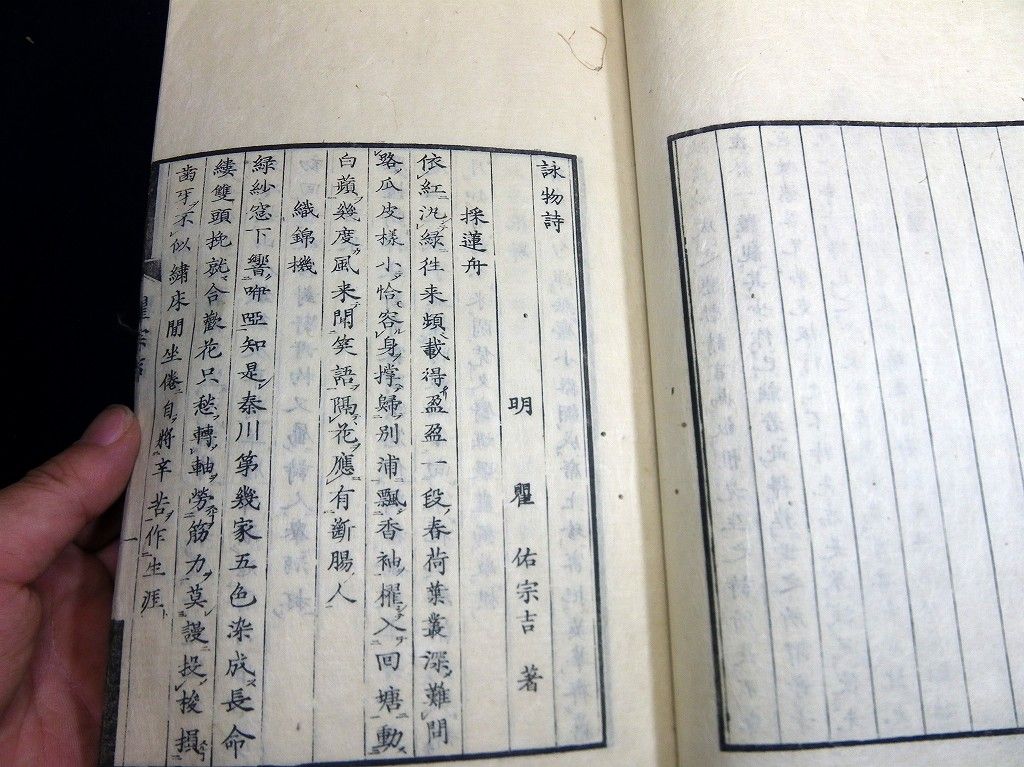 詠物詩
明 瞿 佑宗吉 著
採蓮舟
依紅汎緑往来頻載得盈盈一段春荷葉叢深難問
路瓜皮様小恰容身撐歸別浦飄香袖櫂入回塘動
白蘋幾度風来聞笑語隔花應有斷腸人
織錦機
緑紗窓下響咿啞知是秦川第幾家五色染成長命
縷雙頭挽就合歡花只愁轉軸勞筋力莫謾投梭損
齒牙不似繡床閒坐倦自將辛苦作生涯